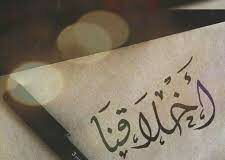 أَخْلَاقُنَا